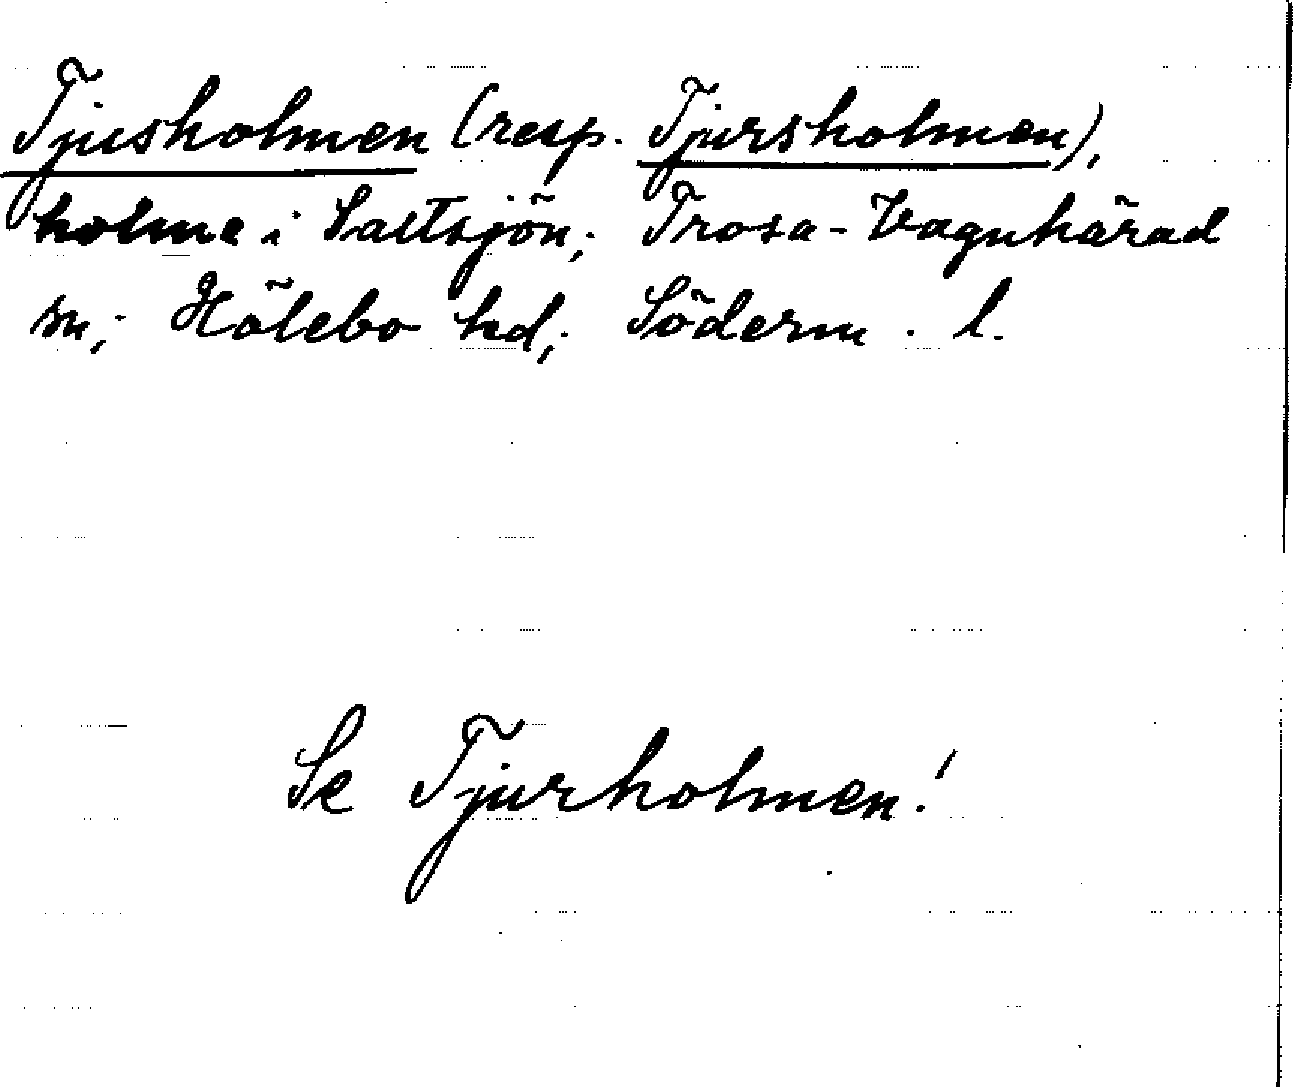 Tjusholmen (resp. Tjursholmen),
holme i Saltsjön; Trosa-Vagnhärad
sn; Hölebo hd; Söderm. l.
Se Tjurholmen!